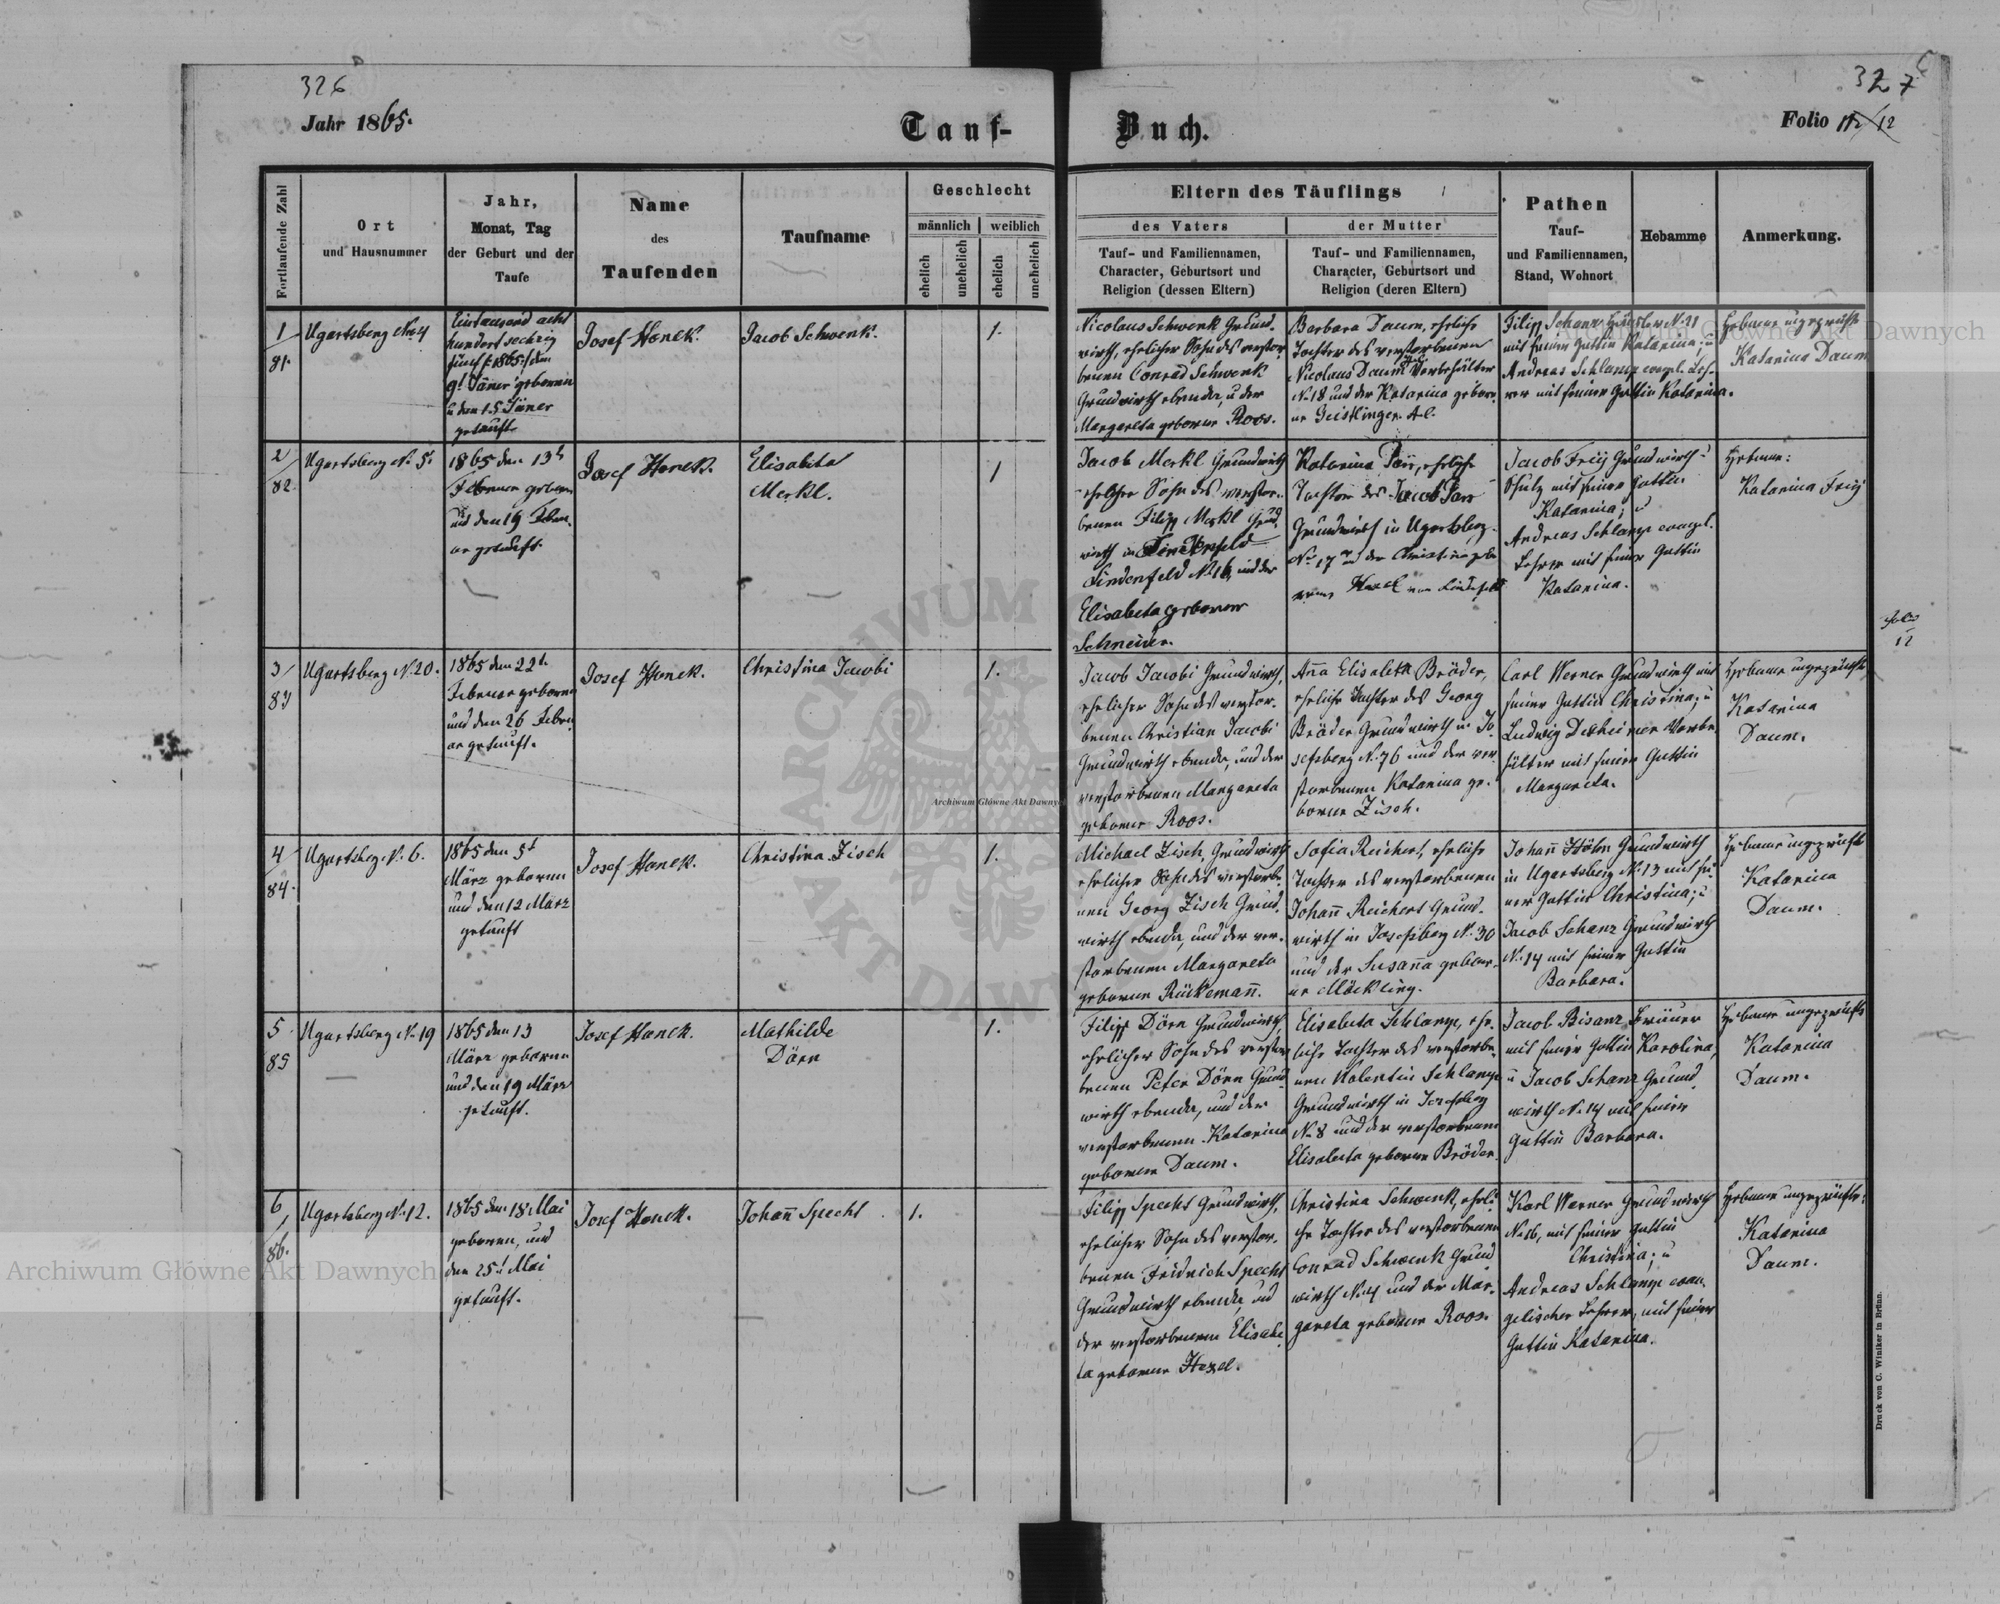 326
327
Jahr 1865.
Tauf-
Buch.
Folio 12
Fortlaufende Zahl
Ort
und Hausnummer
Jahr,
Monat, Tag
der Geburt und der
Taufe
Name
des
Taufenden
Taufname
Geschlecht
männlich
weiblich
ehelich
unehelich
ehelich
unehelich
Eltern des Täuflings
des Vaters
Tauf- und Familiennamen,
Character, Geburtsort und
Religion (dessen Eltern)
der Mutter
Tauf- und Familiennamen,
Character, Geburtsort und
Religion (deren Eltern)
Pathen
Tauf-
und Familiennamen,
Stand, Wohnort
Hebamme
Anmerkung.
1
81.
Ugartsberg No 4
Eintausend acht
hundert sechzig
fünf /:1865:/ den
9t Jäner geboren
u den 15 Jäner
getauft
Josef Honek.
Jacob Schwenk.
1.
Nicolaus Schwenk Grund-
wirth, ehelicher Sohn des verstor-
benen Conrad Schwenk
Grundwirth ebenda, u der
Margareta geborene Roos.
Barbara Daum, eheliche
Tochter des verstorbenen
Nicolaus Daum Vorbehälter
No 18 und der Katarina gebore-
ne Geistlinger.
Filipp Schanz Häusler No 21
mit seiner Gattin Katarina; u
Andreas Schlamp evangl. Leh-
rer mit seiner Gattin Katarina.
Hebame ungeprüft
Katarina Daum
2
82.
Ugartsberg No 5.
1865 den 13t
Februar geboren
und den 19 Febru-
ar getauft.
Josef Honek.
Elisabeta
Merkl.
1
Jacob Merkl Grundwirth
ehelicher Sohn des verstor-
benen Filipp Merkl Grund-
wirth in
Lindenfeld No 16, und der
Elisabeta geborene
Schneider.
Katarina Parr, eheliche
Tochter des Jacob Parr
Grundwirth in Ugartsberg
No 17 und der Christina gebo-
rene
Jacob Frey Grundwirth
Schulz mit seiner Gattin
Katarina; u
Andreas Schlamp evangl.
Lehrer mit seiner Gattin
Katarina.
Hebame:
Katarina Frey
3
83
Ugartsberg No 20.
1865 den 22t
Februar geboren
und den 26 Febru-
ar getauft.
Josef Honek.
Christina Jacobi
1.
Jacob Jacobi Grundwirth,
ehelicher Sohn des verstor-
benen Christian Jacobi
Grundwirth ebenda, und der
verstorbenen Margareta
geborene Roos.
Anna Elisabeta Bröder,
eheliche Tochter des Georg
Bröder Grundwirth in Jo-
sefsberg No 76 und der ver-
storbenen Katarina ge-
borene Zisch.
Carl Werner Grundwirth mit
seiner Gattin Christina; u
Ludwig Decheimer Vorbe-
hälter mit seiner Gattin
Margareta.
Hebame ungeprüft
Katarina
Daum.
4
84.
Ugartsbg No 6.
1865 den 5t
März geboren
und den 12 März
getauft
Josef Honek.
Christina Zisch
1.
Michael Zisch, Grundwirth
ehelicher Sohn des verstorbe-
nen Georg Zisch Grund-
wirth ebenda, und der ver-
storbenen Margareta
geborene Rückemañ.
Sofia Reichert, eheliche
Tochter des verstorbenen
Johañ Reichert Grund-
wirth in Josefsberg No 30
und der Susaña gebore-
ne Möckling.
Johañ Höhn Grundwirth
in Ugartsberg No 13 mit sei-
ner Gattin Christina; u
Jacob Schanz Grundwirth
No 14 mit seiner Gattin
Barbara.
Hebame ungeprüft
Katarina
Daum.
5
85
Ugartsberg No 19
1865 den 13
März geboren
und den 19 März
getauft.
Josef Honek.
Mathilde
Dörn
1.
Filipp Dörn Grundwirth,
ehelicher Sohn des verstor-
benen Peter Dörn Grund-
wirth ebenda, und der
verstorbenen Katarina
geborene Daum.
Elisabeta Schlamp, ehe-
liche Tochter des verstorbe-
nen Valentin Schlamp
Grundwirth in Josefsberg
No 8 und der verstorbenen
Elisabeta geborene Bröder.
Jacob Bisanz Bräuer
mit seiner Gattin Karolina,
u Jacob Schanz Grund-
wirth No 14 mit seiner
Gattin Barbara.
Hebame ungeprüft
Katarina
Daum.
6
86.
Ugartsberg No 12.
1865 den 18 Mai
geboren, und
den 25t Mai
getauft.
Josef Honek.
Johañ Specht
1.
Filipp Specht Grundwirth,
ehelicher Sohn des verstor-
benen Fridrich Specht
Grundwirth ebenda, und
der verstorbenen Elisabe-
ta geborene Hexel.
Christina Schwenk, eheli-
che Tochter des verstorbenen
Conrad Schwenk Grund-
wirth No 4 und der Mar-
gareta geborene Roos.
Karl Werner Grundwirth
No 16, mit seiner Gattin
Christina; u
Andreas Schlamp evan-
gelischer Lehrer, mit seiner
Gattin Katarina.
Hebame ungeprüft:
Katarina
Daum.
Druck von C. Winiker in Brünn.
Archiwum Główne Akt Dawnych
Archiwum Główne Akt Dawnych
Archiwum Główne Akt Dawnych
ARCHIWUM
AKT DAWNYCH